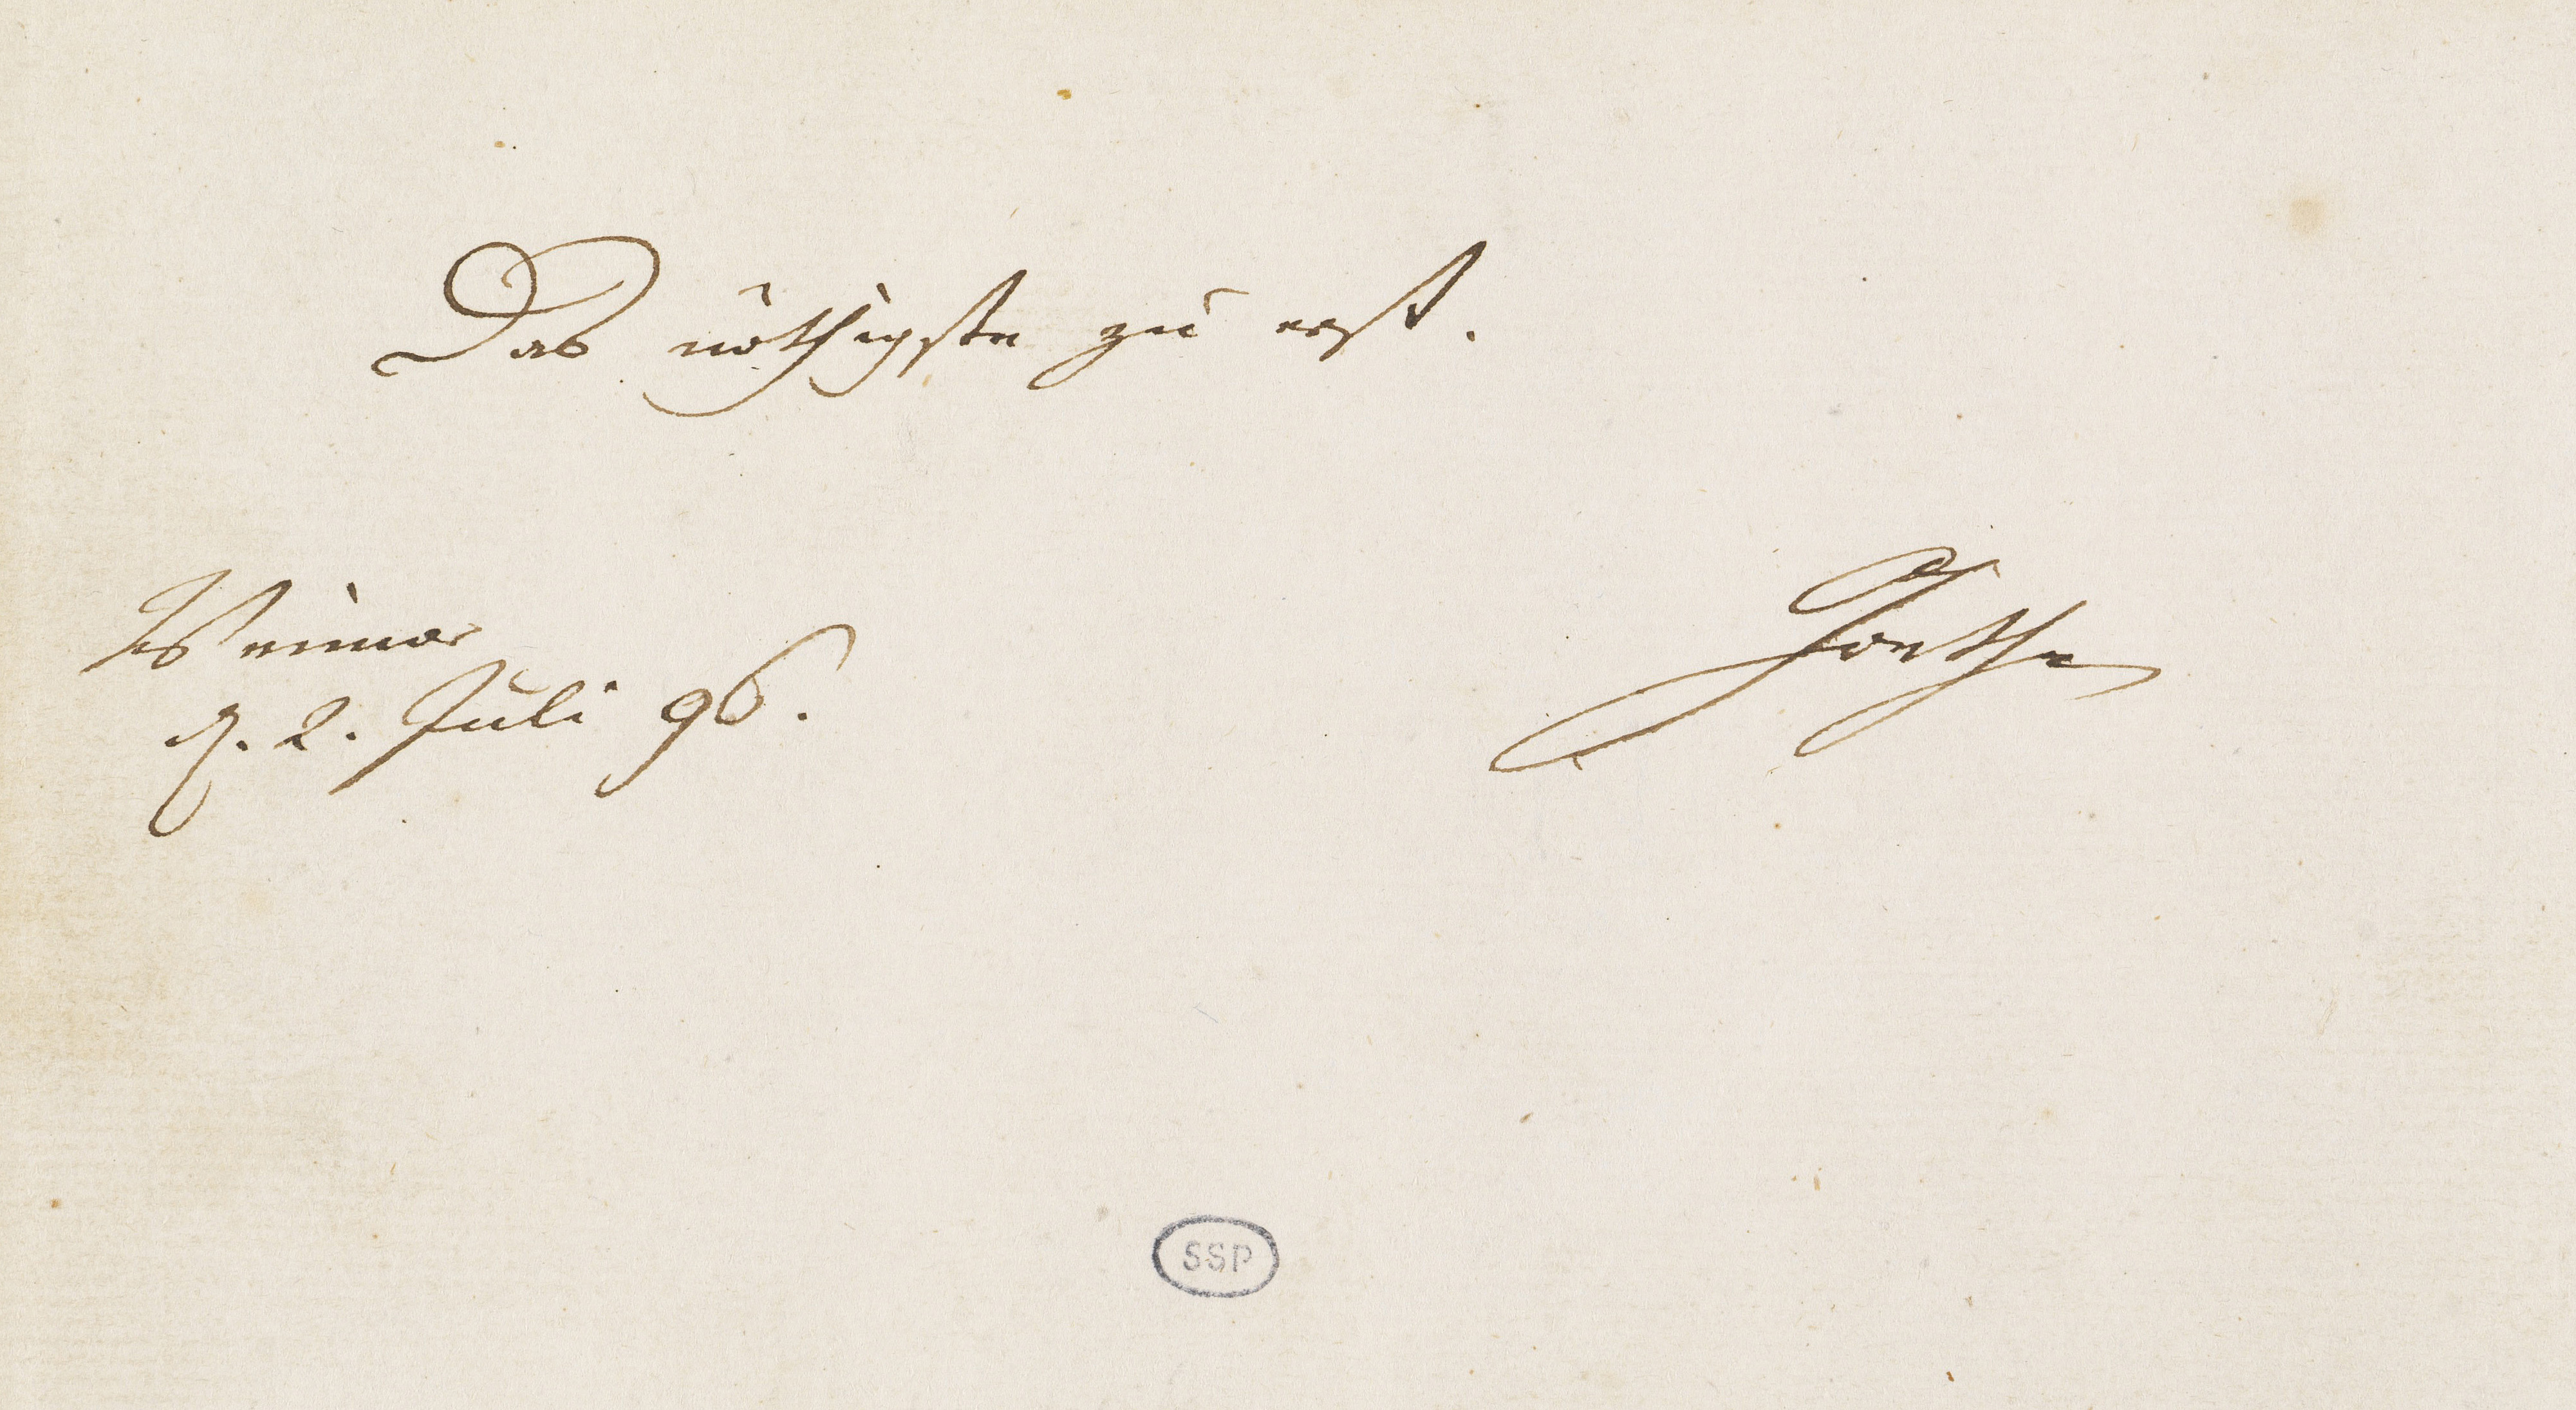 Das nöthigste zu erst.
Weimar
d. 2. Juli 96.
Goethe
SSP